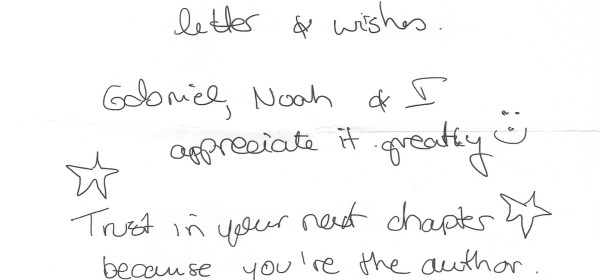 letter & wishes.
Gabriel, Noah & I
appreciate it greatly
Trust in your next chapter
because you're the author.